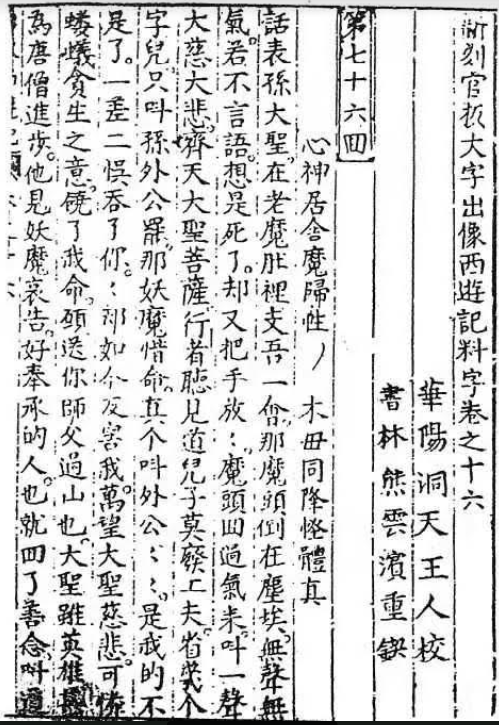 新刻官板大字出像西遊記料字卷之十六
華陽洞天王人校
書林熊雲濱重鍥
第七十六回
心神居舍魔歸性　木毋同降怪體真
話表孫大聖。在老魔肚裡支吾一會。那魔頭倒在塵埃。無聲無
氣。若不言語。想是死了。却又把手放〻。魔頭回過氣來。叫一聲
大慈大悲。齊天大聖菩薩。行者聽見道兒子莫廢工夫。省幾个
字兒。只叫孫外公罷。那妖魔惜命。真个叫外公〻〻。是我的不
是了。一差二悞吞了你。〻却如今反害我。萬望大聖慈悲。可憐
螻蟻貪生之意。饒了我命。願送你師父過山也。大聖雖英雄甚
為唐僧進步。他見妖魔哀告。好奉承的人。也就回了善念。叫道